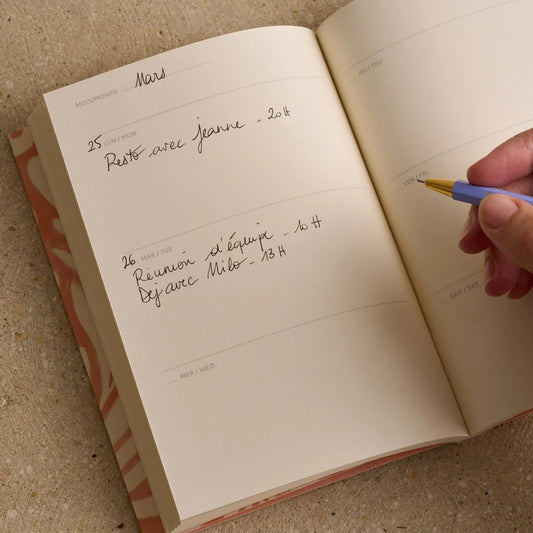 MOIS/MONTH Mars
25 LUN / MON
Resto avec Jeanne - 20H
26 MAR / TUE
Réunion d'équipe - 10H
Dej avec Milo - 13H
MER / WED
JEU / THU
VEN / FRI
SAM / SAT